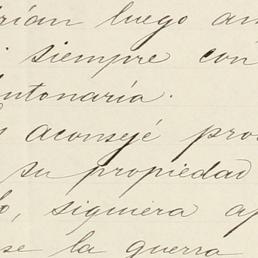 rían luego an
siempre con
ntonaría.
s aconsejé pros
su propiedad
o, siguiera ap
se la guerra